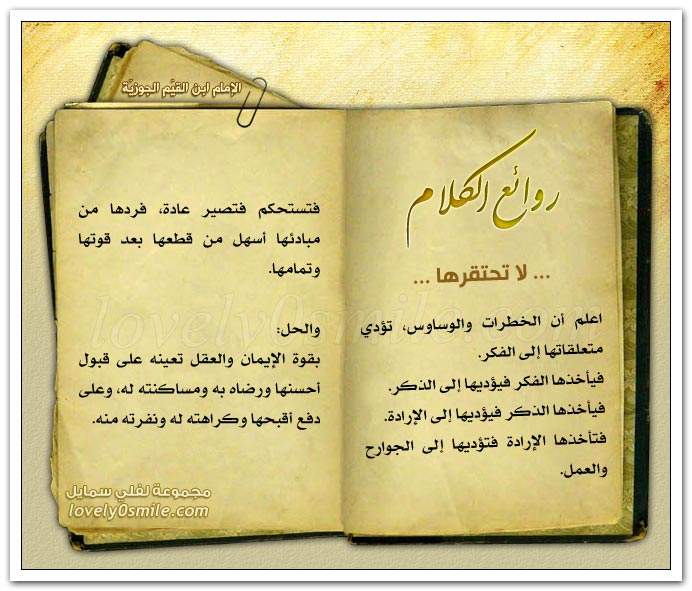 الإمام ابن القيّم الجوزيّة
روائع الكلام
... لا تحتقرها ...
اعلم أن الخطرات والوساوس، تؤدي
متعلقاتها إلى الفكر.
فيأخذها الفكر فيؤديها إلى الذكر.
فيأخذها الذكر فيؤديها إلى الإرادة.
فتأخذها الإرادة فتؤديها إلى الجوارح
والعمل.
فتستحكم فتصير عادة، فردها من
مبادئها أسهل من قطعها بعد قوتها
وتمامها.
والحل:
بقوة الإيمان والعقل تعينه على قبول
أحسنها ورضاه به ومساكنته له، وعلى
دفع أقبحها وكراهته له ونفرته منه.
lovely0smile.com
مجموعة لفلي سمايل
lovely0smile.com